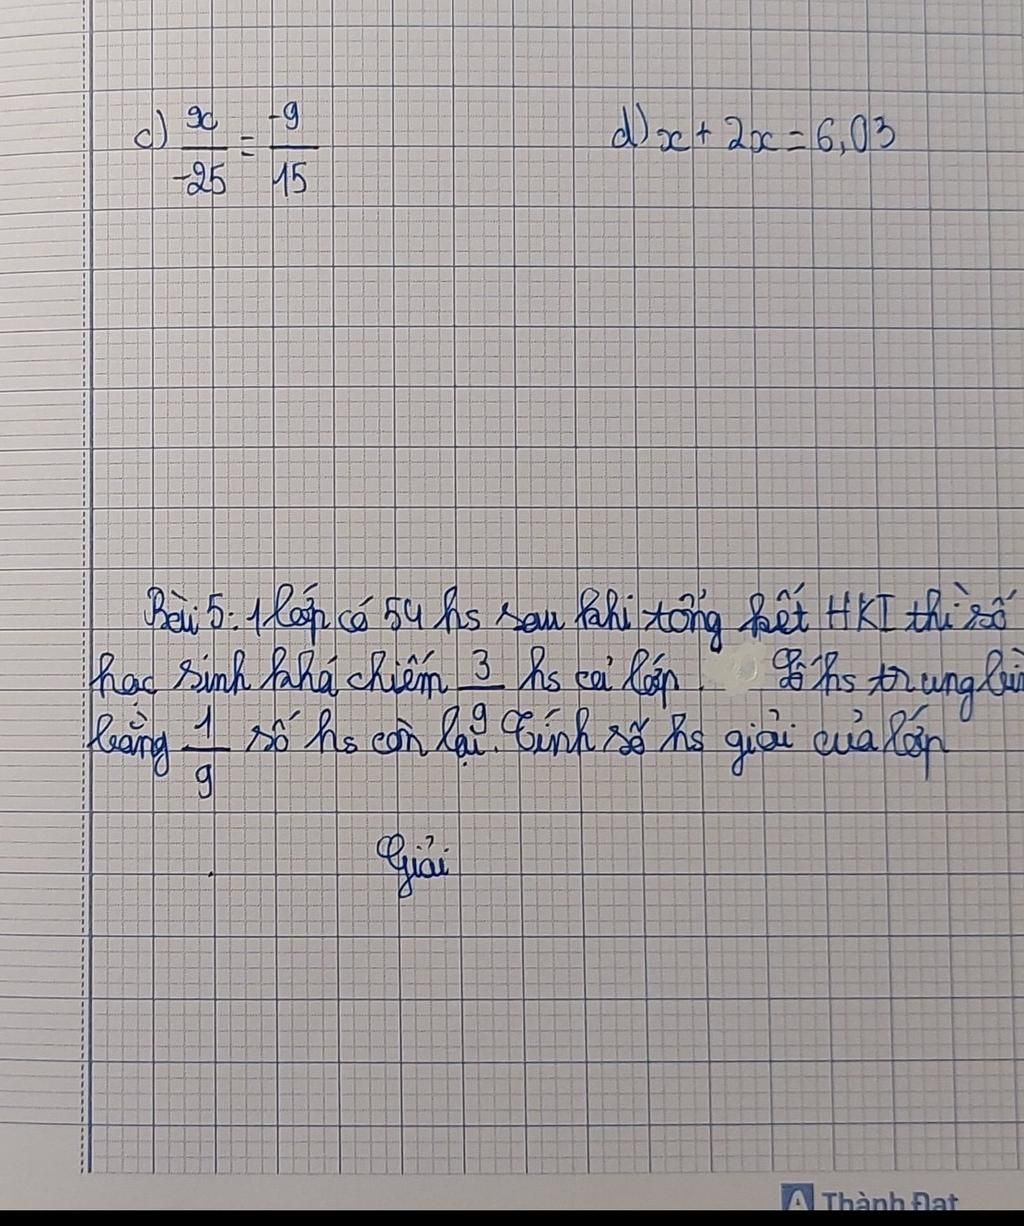 c) x/-25 = -9/15
d) x + 2x = 6,03
Bài 5: 1 lớp có 54 hs sau khi tổng kết HKI thì số
học sinh khá chiếm 3/9 hs cả lớp. Số hs trung bìn
bằng 1/9 số hs còn lại. Tính số hs giỏi của lớp
Giải
Thành Đạt